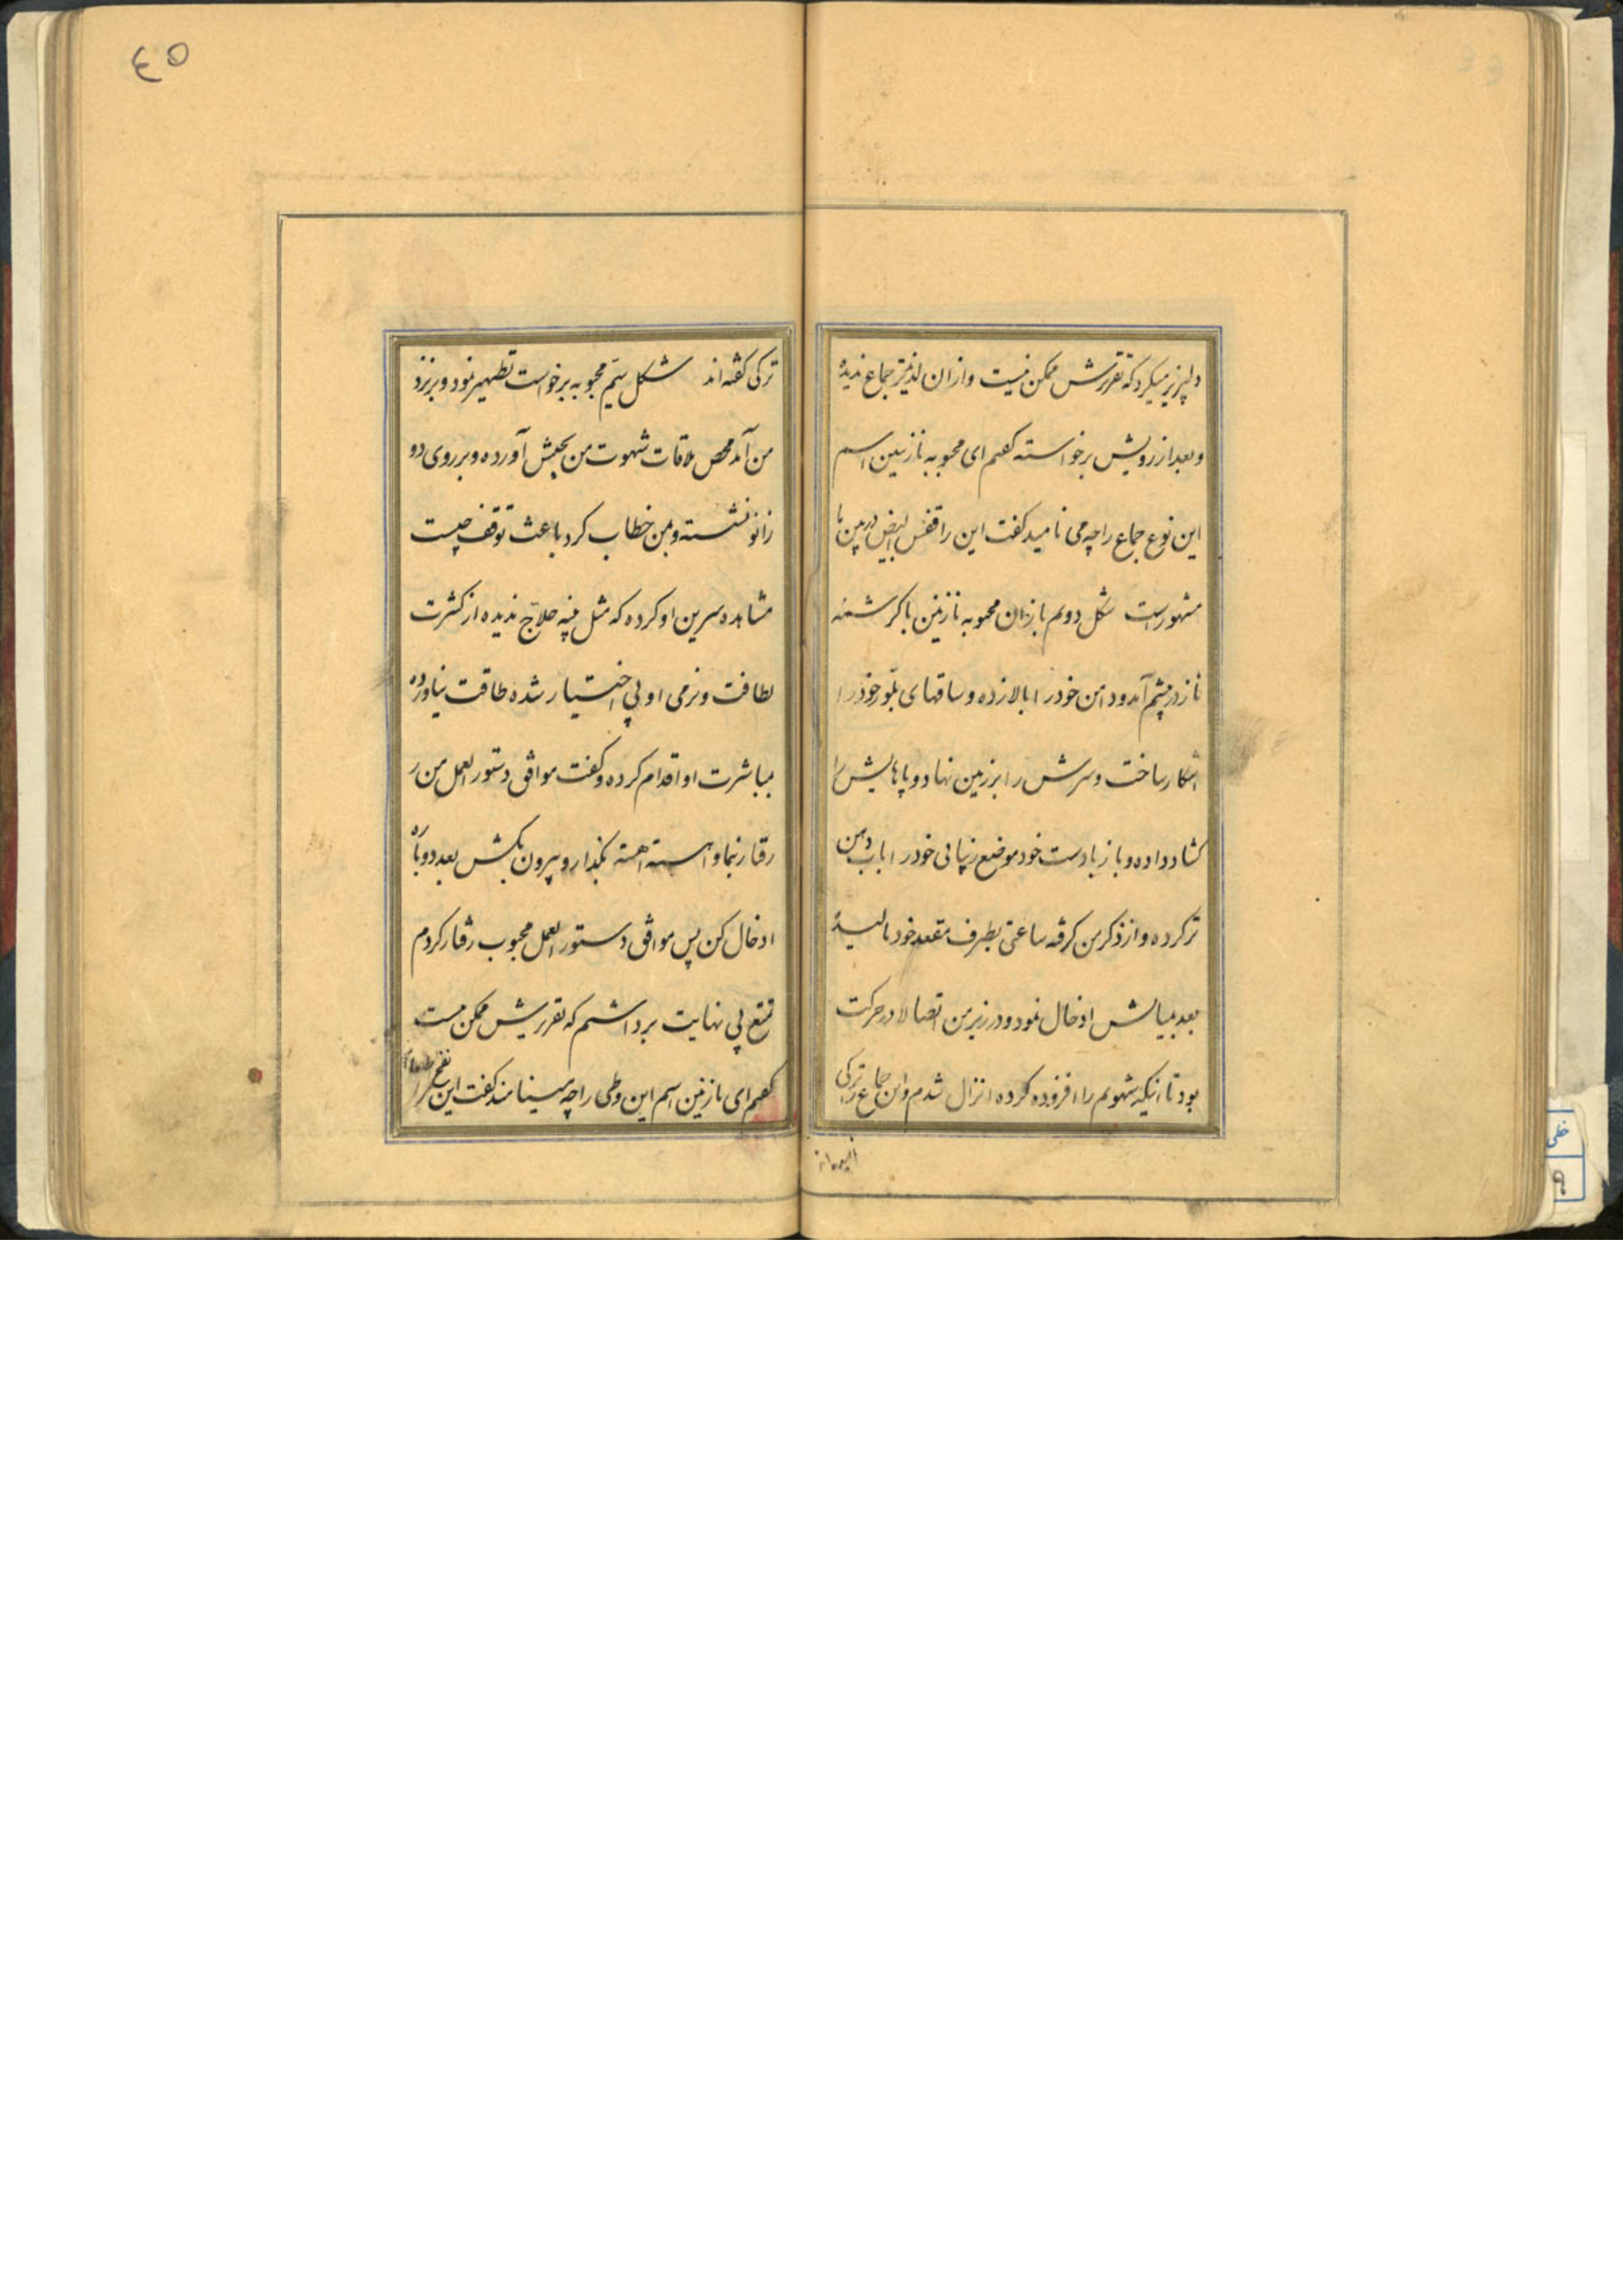 دلپزیر میکرد که تقریرش ممکن نیست وازان لذیذتر جماع ندیدهٔ
وبعد از رویش برخواسته کفتم ای محبوبه نازنین اسم
این نوع جماع را چه می نامید کفت این را قفس ابیض درمین ما
مشهور است شکل دویم باز ان محبوبه نازنین با کرشمه
ناز در پیشم آمد ودامن خود را بالا زده وساقهای بلور خود را
اشکار ساخت وسرش را بر زمین نهاد وپاهایش را
کشاد داده وباز با دست خود موضع زنانی خود را باب دهن
تر کرده واز ذکر من کرفته ساعتی بطرف مقعد خود مالیدهٔ
بعد بمیانش ادخال نمود ودر زیر من اتصالا در حرکت
بود تا انیکه شهوتم را افزوده کرده انزال شدم واین جماع را ترکی
ترکی کفته اند شکل سیّم محبوبه برخواست تطهیر نمود وبر نزد
من آمد محض ملاقات شهوت من بجنبش آورده وبر روی دو
زانو نشسته وبمن خطاب کرد باعث توقف چیست
مشاهده سرین او کرده که مثل پنبه حلاج ندیده از کثرت
لطافت ونرمی او بی اختیار شده طاقت نیاورده
بمباشرت او اقدام کرده وکفت موافق دستور العمل من ر
رفتار نما واهسته اهسته بکذار وبیرون بکش بعد دوباره
ادخال کن پس موافق دستور العمل محبوب رفتار کردم
تمتع بی نهایت برداشتم که تقریرش ممکن نیست
کفتم ای نازنین اسم این وطی را چه مینامند کفت این را
٤٥